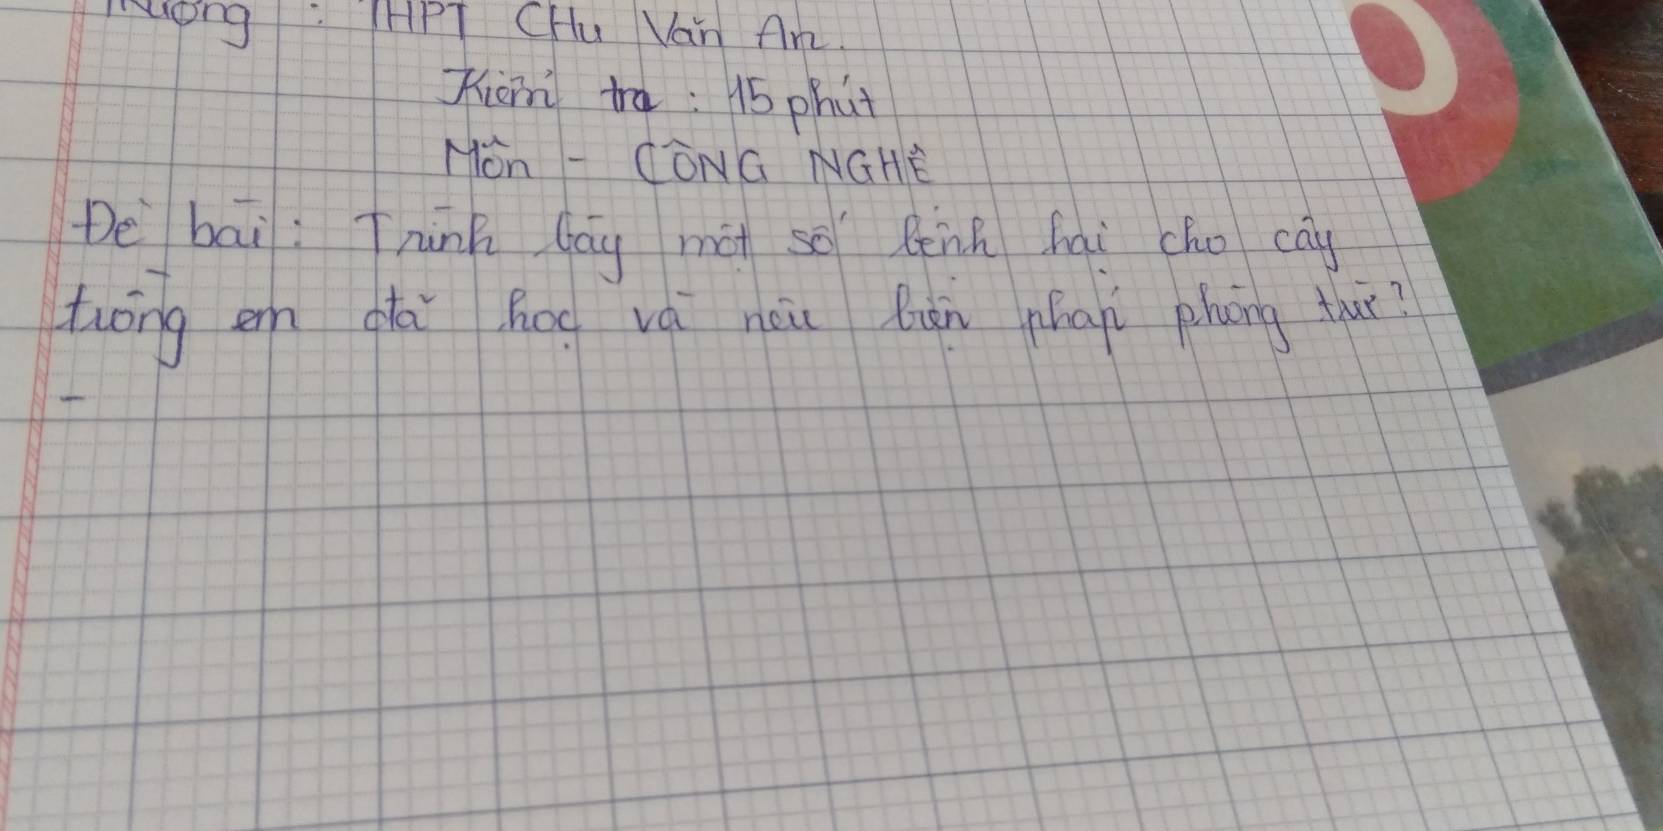 Trường : THPT CHu Văn An.
Kiểm tra : 15 phút
Môn - CÔNG NGHỆ
Đề bài : Trình bày một số bệnh hại cho cây
trồng em đã học và nêu biện pháp phòng trừ?
-